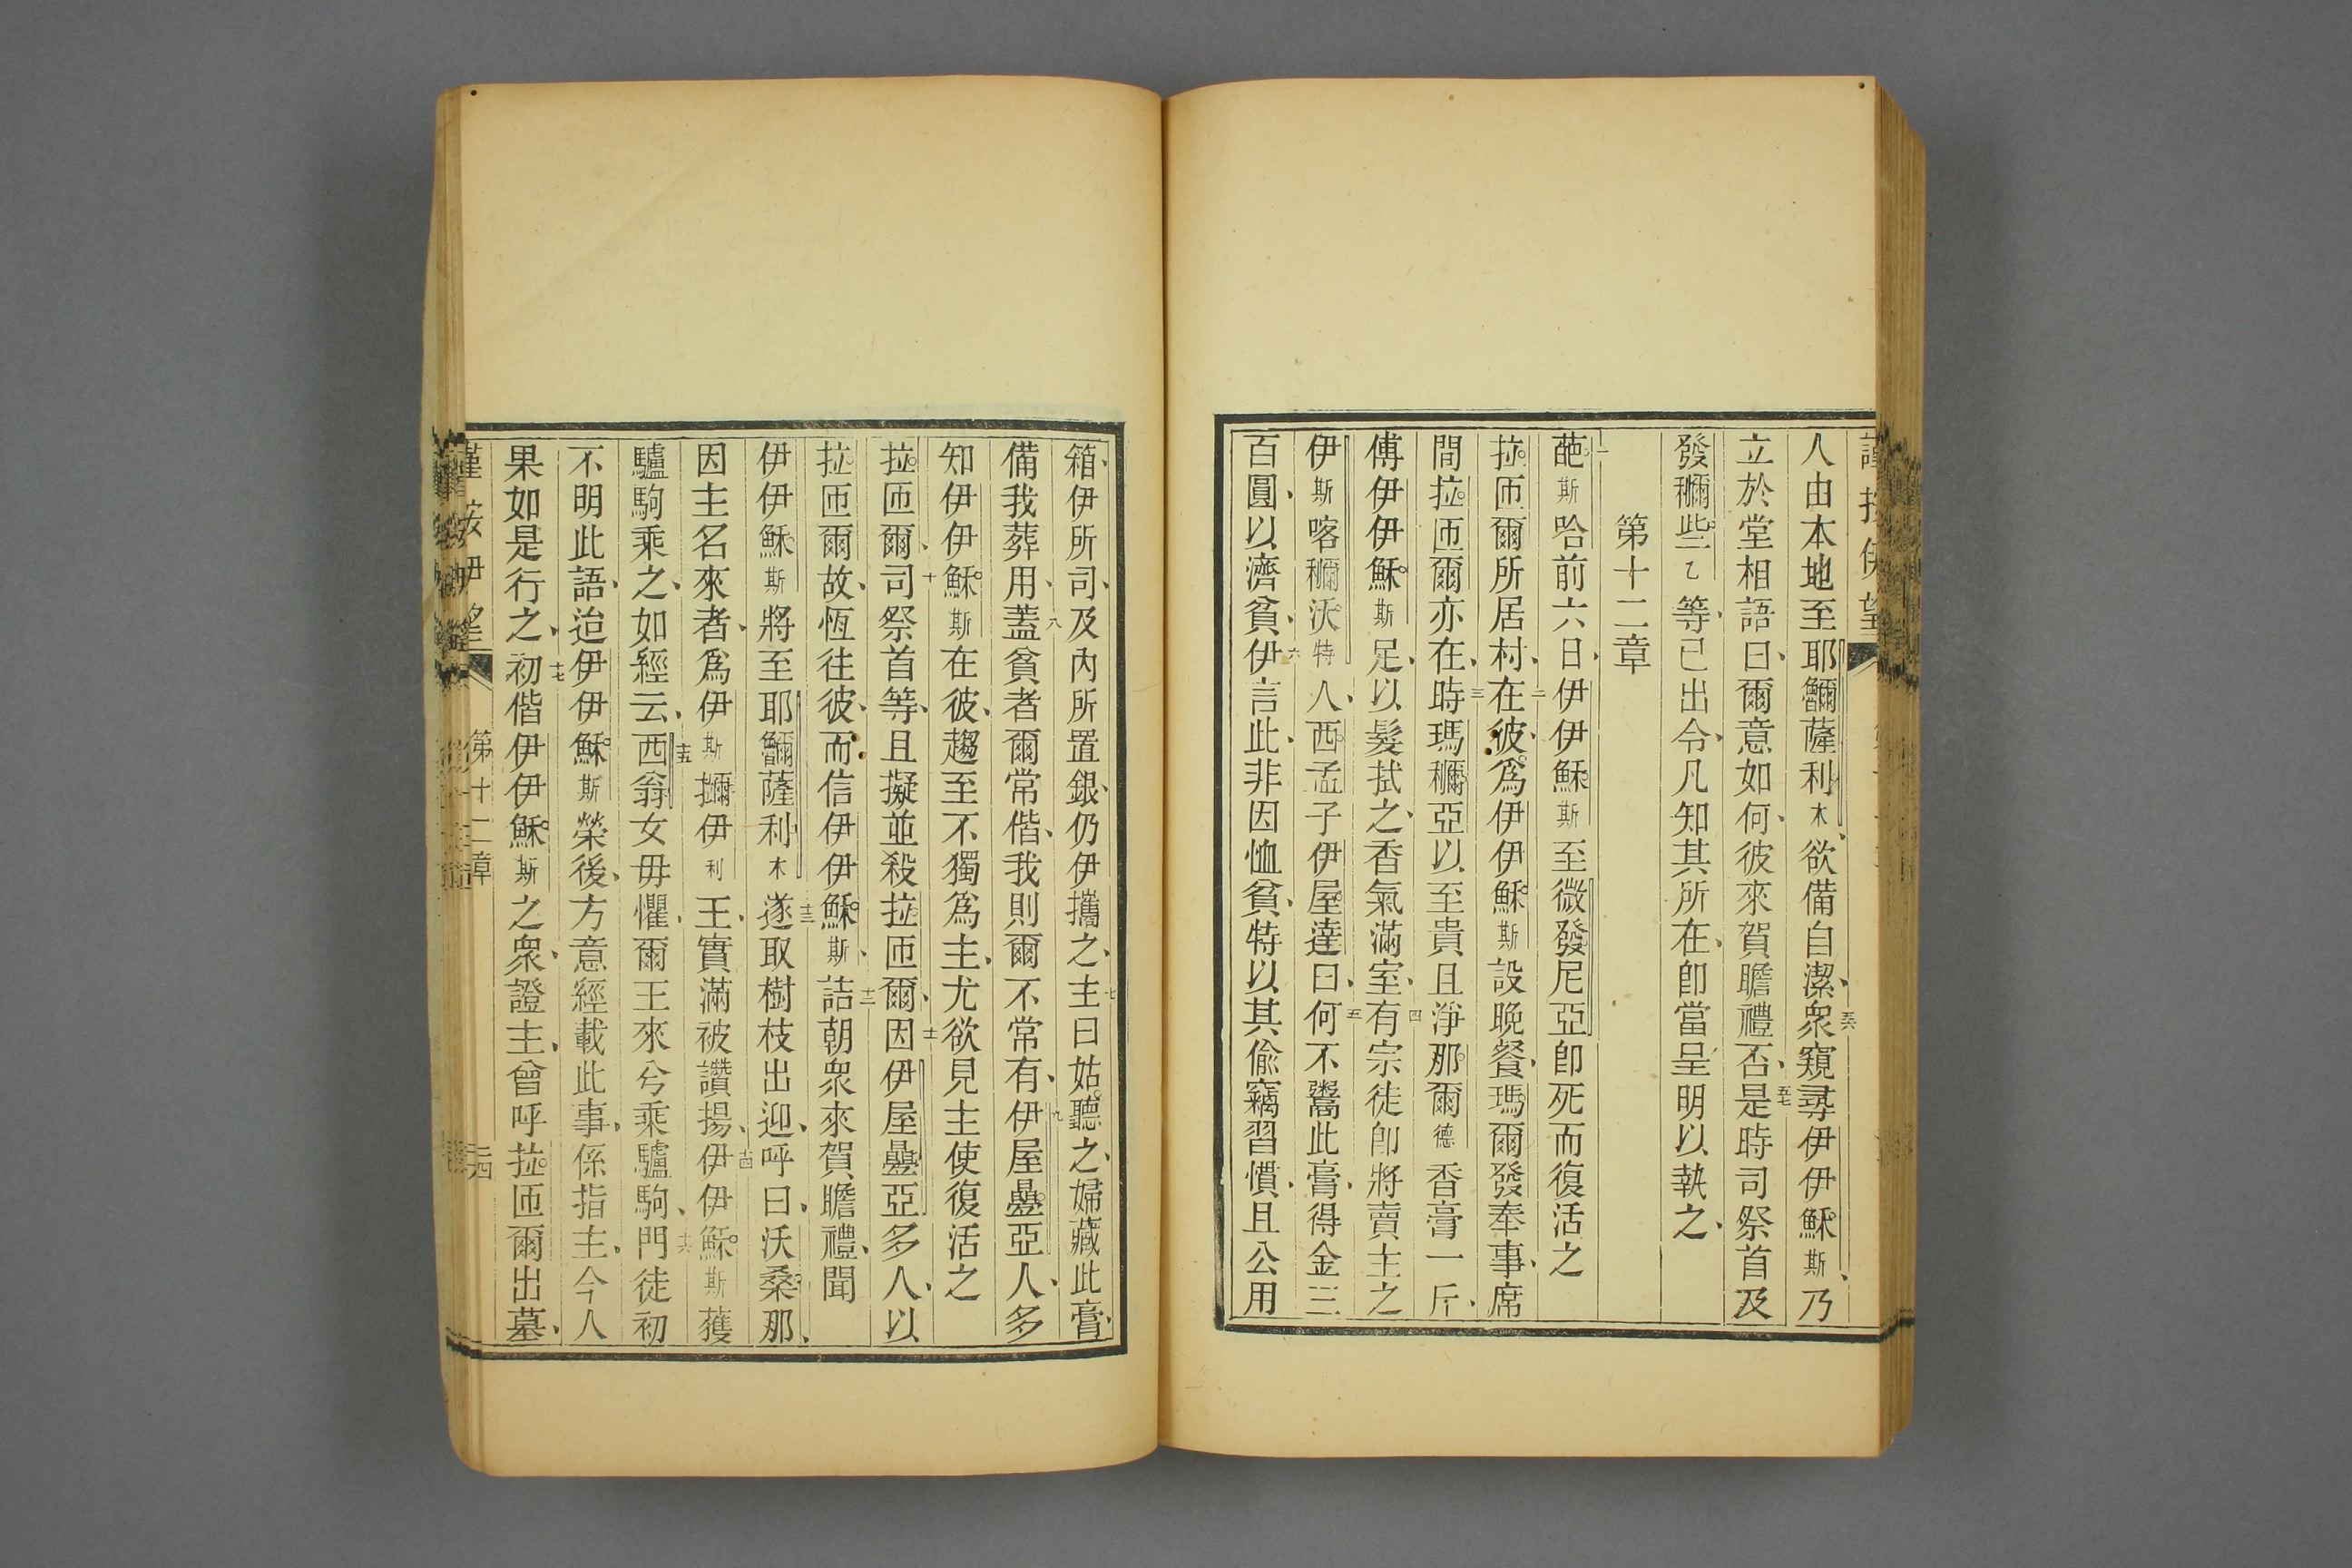 人由本地至耶穪薩利木欲備自潔、衆窺尋伊伊穌斯、乃
立於堂相語曰、爾意如何、彼來賀瞻禮否、是時司祭首及
發穪些乙等、已出令、凡知其所在、卽當呈明以執之、
第十二章
葩斯哈前六日、伊伊穌斯至微發尼亞卽死而復活之
拉匝爾所居村、在彼、爲伊伊穌斯設晚餐、瑪爾發奉事、席
間拉匝爾亦在、時瑪穪亞以至貴且淨那爾德香膏一斤、
傅伊伊穌斯足、以髮拭之、香氣滿室、有宗徒卽將賣主之
伊斯喀穪沃特人、西孟子伊屋達曰、何不鬻此膏、得金三
百圓、以濟貧、伊言此、非因恤貧、特以其偸竊習慣、且公用
箱、伊所司、及內所置銀、仍伊攜之、主曰姑聽之、婦藏此膏、
備我葬用、蓋貧者爾常偕、我則爾不常有、伊屋疊亞人、多
知伊伊穌斯在彼、趨至不獨爲主、尤欲見主使復活之
拉匝爾、司祭首等、且擬並殺拉匝爾、因伊屋疊亞多人、以
拉匝爾故、恆往彼、而信伊伊穌斯、詰朝衆來賀瞻禮、聞
伊伊穌斯將至耶穪薩利木遂取樹枝出迎、呼曰、沃桑那、
因主名來者、爲伊斯擟伊利王、實滿被讚揚、伊伊穌斯獲
驢駒乘之、如經云、西翁女毋懼、爾王來兮乘驢駒、門徒初
不明此語、迨伊伊穌斯榮後、方意經載此事、係指主、今人
果如是行之、初偕伊伊穌斯之衆、證主、曾呼拉匝爾出墓、
第十二章
二四